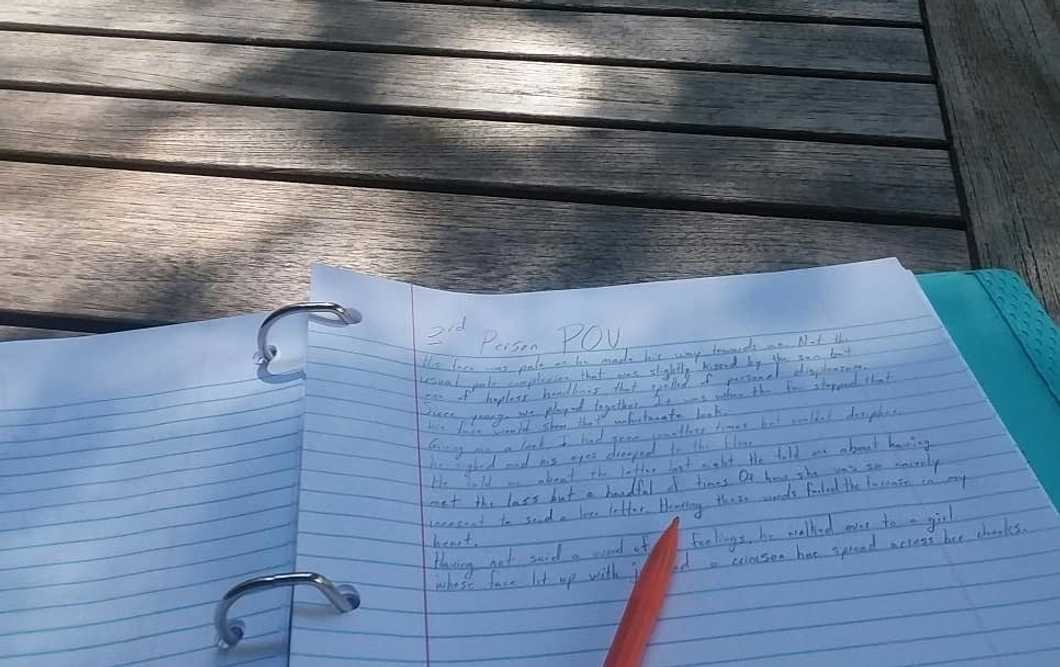 3rd Person POV
His face was pale as he made his way towards me. Not the
usual pale complexion that was slightly kissed by the sun but
one of hapless that spelled of personal displeasure.
Since young, we played together. It was when the fun stopped that
his face would show that unfortunate look.
Giving me a look I had seen countless times but couldn't decipher.
he sighed and his eyes drooped to the floor.
He told me about the letter last night. He told me about having
met the lass but a handful of times. Or how she was so naively
innocent to send a love letter. Hearing these words fueled the furnace in my
heart.
Having not said a word of feelings, he walked over to a girl
whose face lit up with a crimson hue spread across her cheeks.